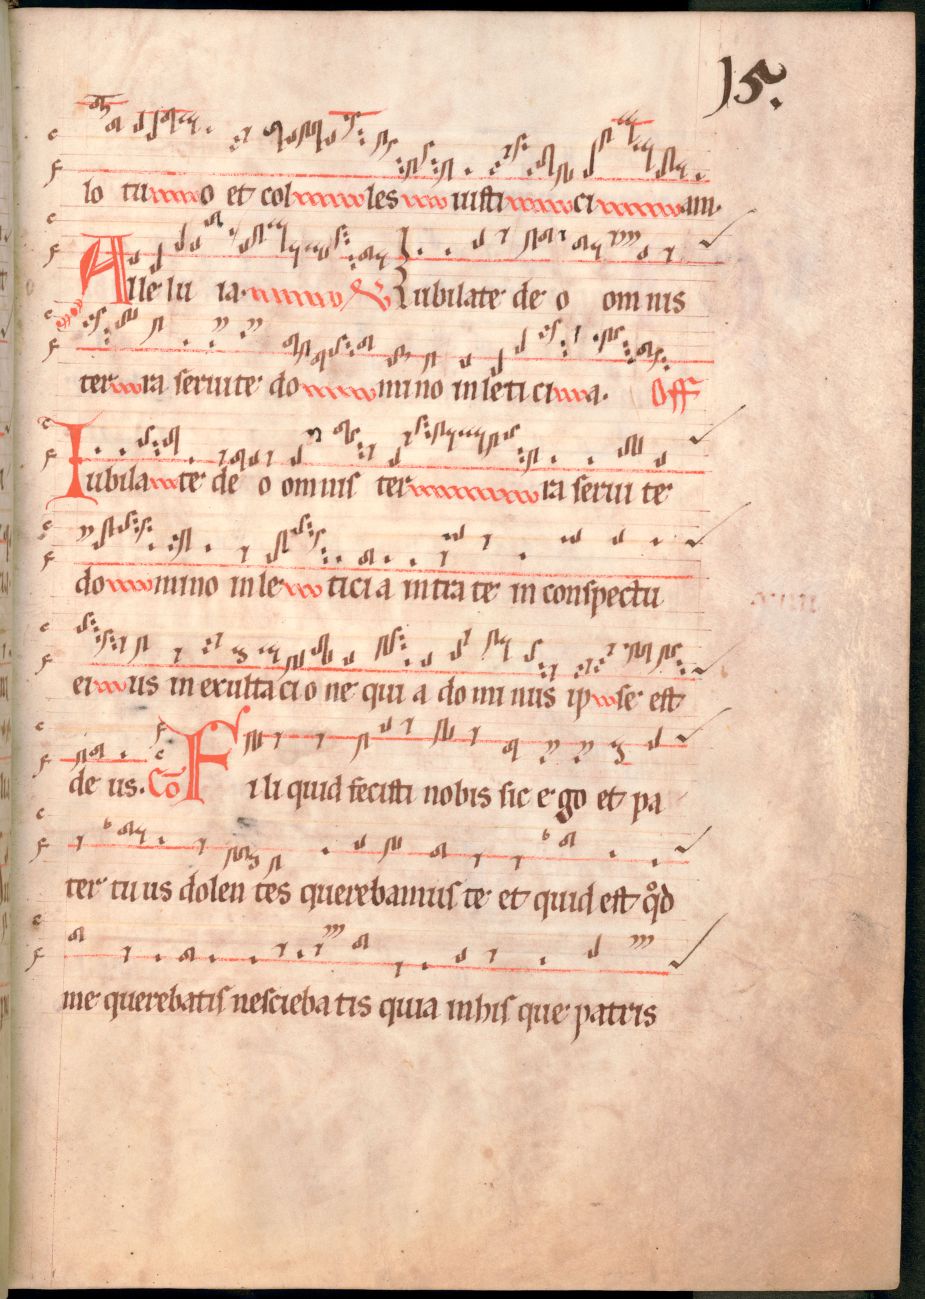 15.
lo tuo et colles iusticiam.
Alle lu ia. V Iubilate de o omnis
terra seruite domino in leticia. Off
Iubilate de o omnis terra seruite
domino in leticia intrate in conspectu
eius in exultacione qui a dominus ipse est
deus. Co Fili quid fecisti nobis sic ego et pa
ter tuus dolentes querebamus te et quid est qd
me querebatis nesciebatis quia in his que patris